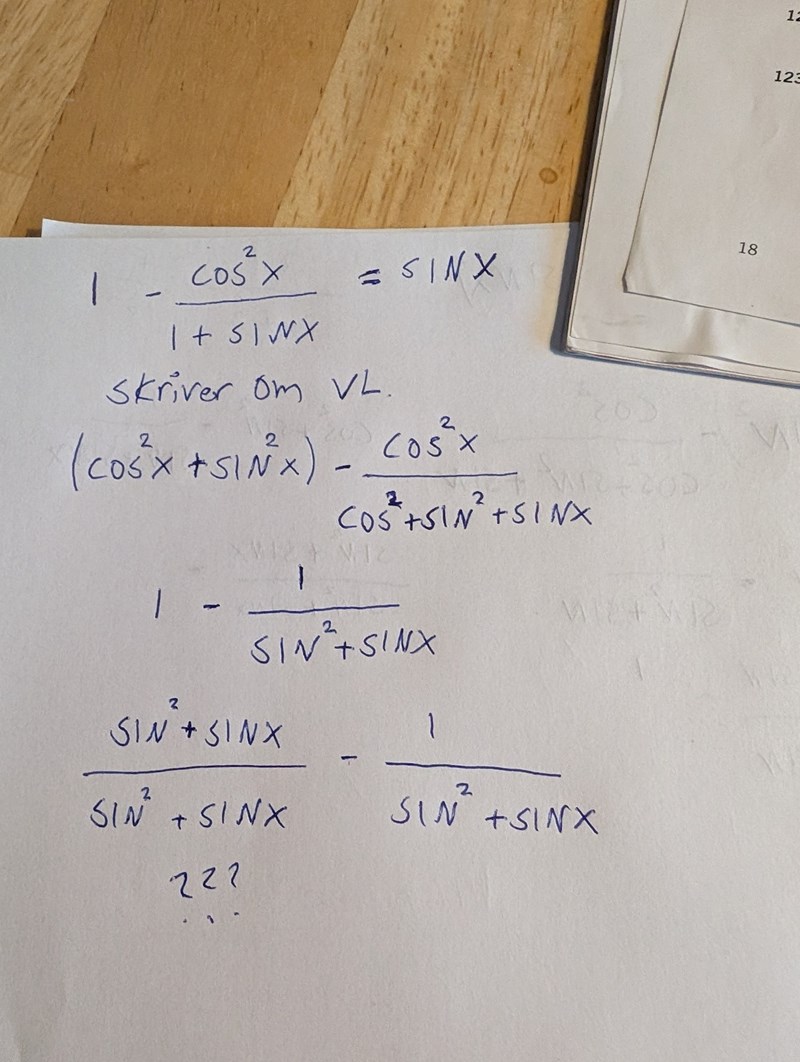 12
123
18
1 - cos²x / (1 + SINX) = SINX
Skriver om VL.
(cos²x + SIN²x) - cos²x / (cos² + SIN² + SINX)
1 - 1 / (SIN² + SINX)
(SIN² + SINX) / (SIN² + SINX) - 1 / (SIN² + SINX)
???